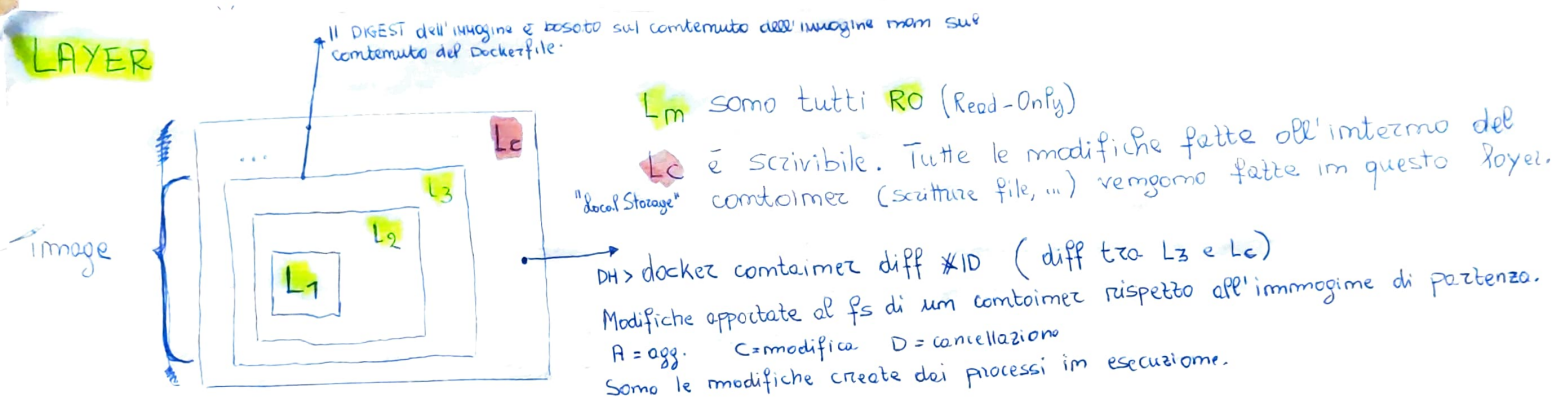 LAYER
Il DIGEST dell'immagine è basato sul contenuto dell'immagine non sul
contenuto del Dockerfile.
Ln sono tutti RO (Read-Only)
Lc è scrivibile. Tutte le modifiche fatte all'interno del
"Local Storage" container (scritture file, ...) vengono fatte in questo layer.
Lc
...
L3
L2
L1
image
DH > docker container diff #ID (diff tra L3 e Lc)
Modifiche apportate al fs di un container rispetto all'immagine di partenza.
A = agg. C = modifica D = cancellazione
Sono le modifiche create dai processi in esecuzione.